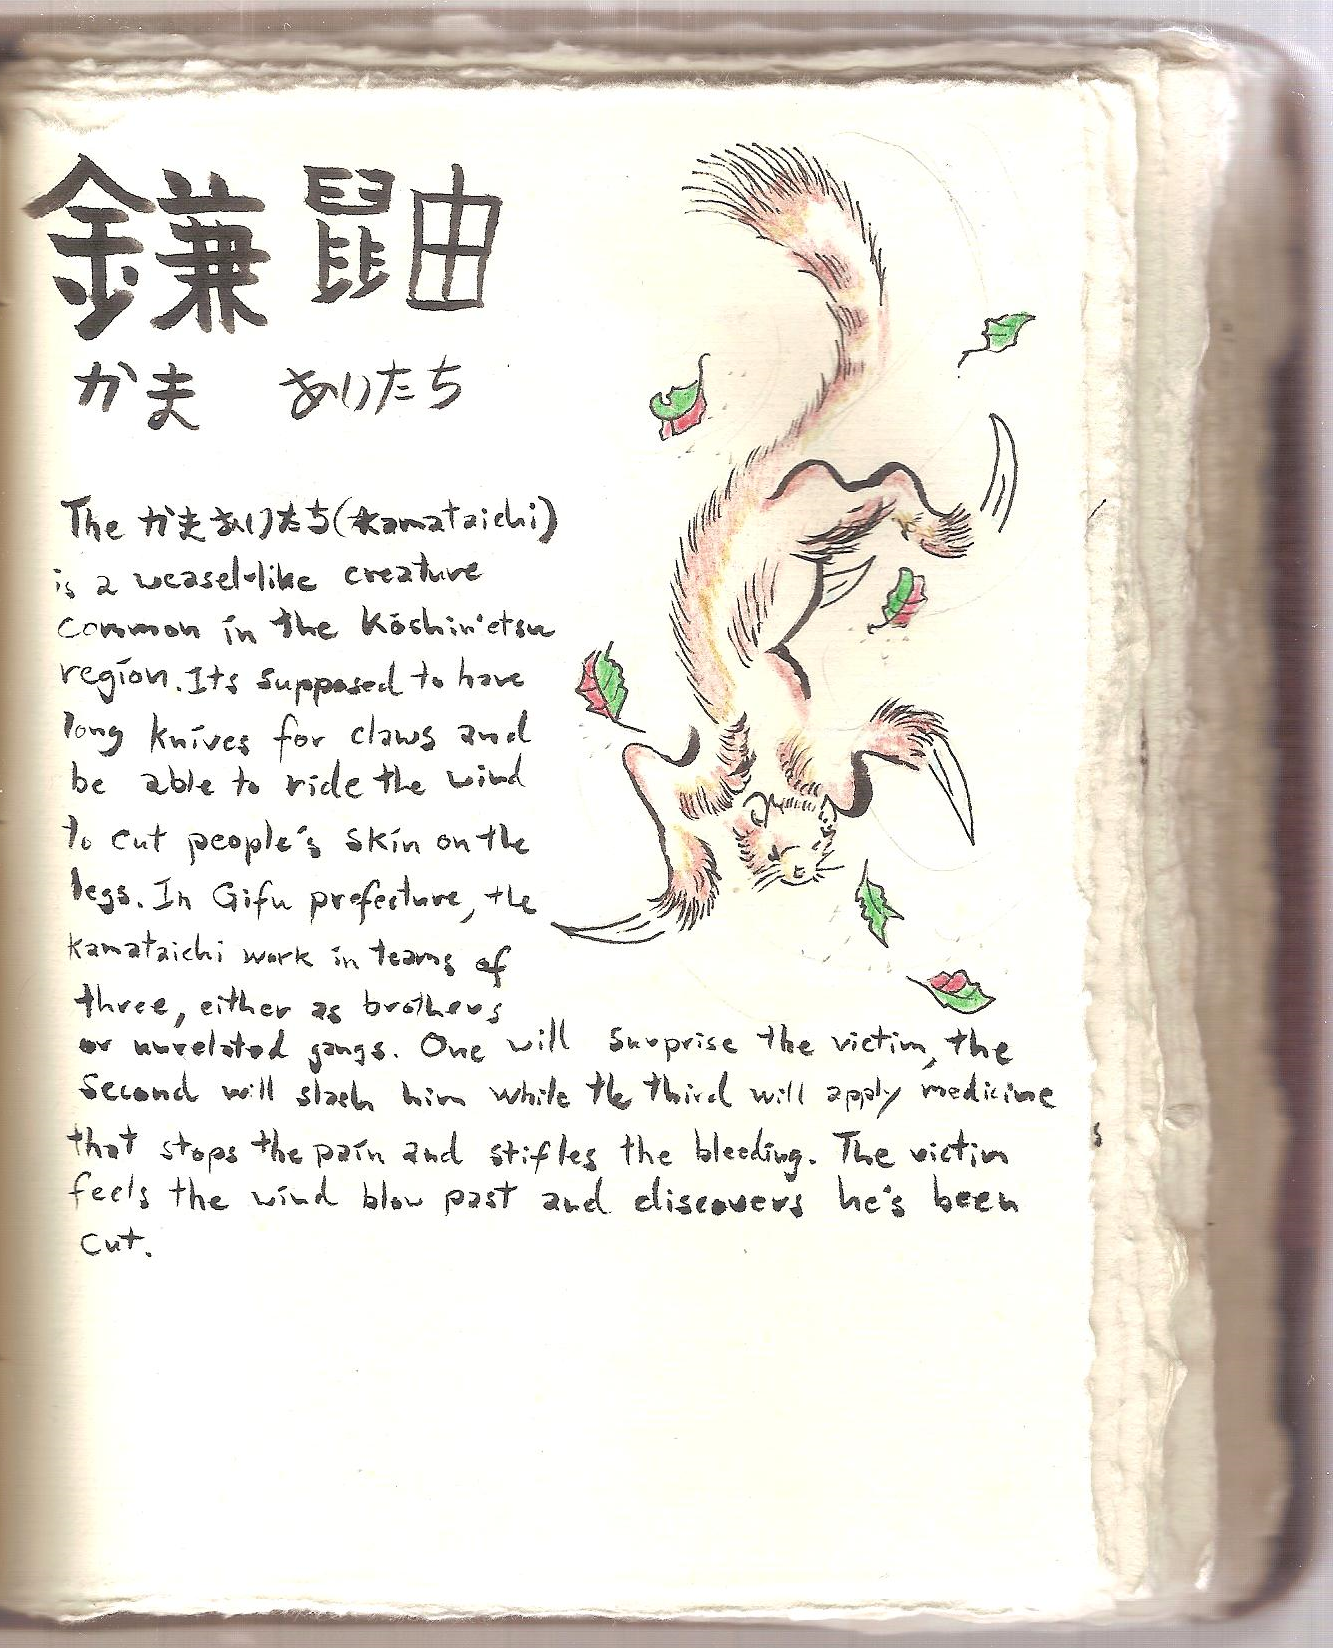 鎌鼬
かま ありたち
The かまありたち(kamataichi)
is a weasel-like creature
common in the Kōshin'etsu
region. Its supposed to have
long knives for claws and
be able to ride the wind
to cut people's skin on the
legs. In Gifu prefecture, the
kamataichi work in teams of
three, either as brothers
or unrelated gangs. One will surprise the victim, the
second will slash him while the third will apply medicine
that stops the pain and stifles the bleeding. The victim
feels the wind blow past and discovers he's been
cut.